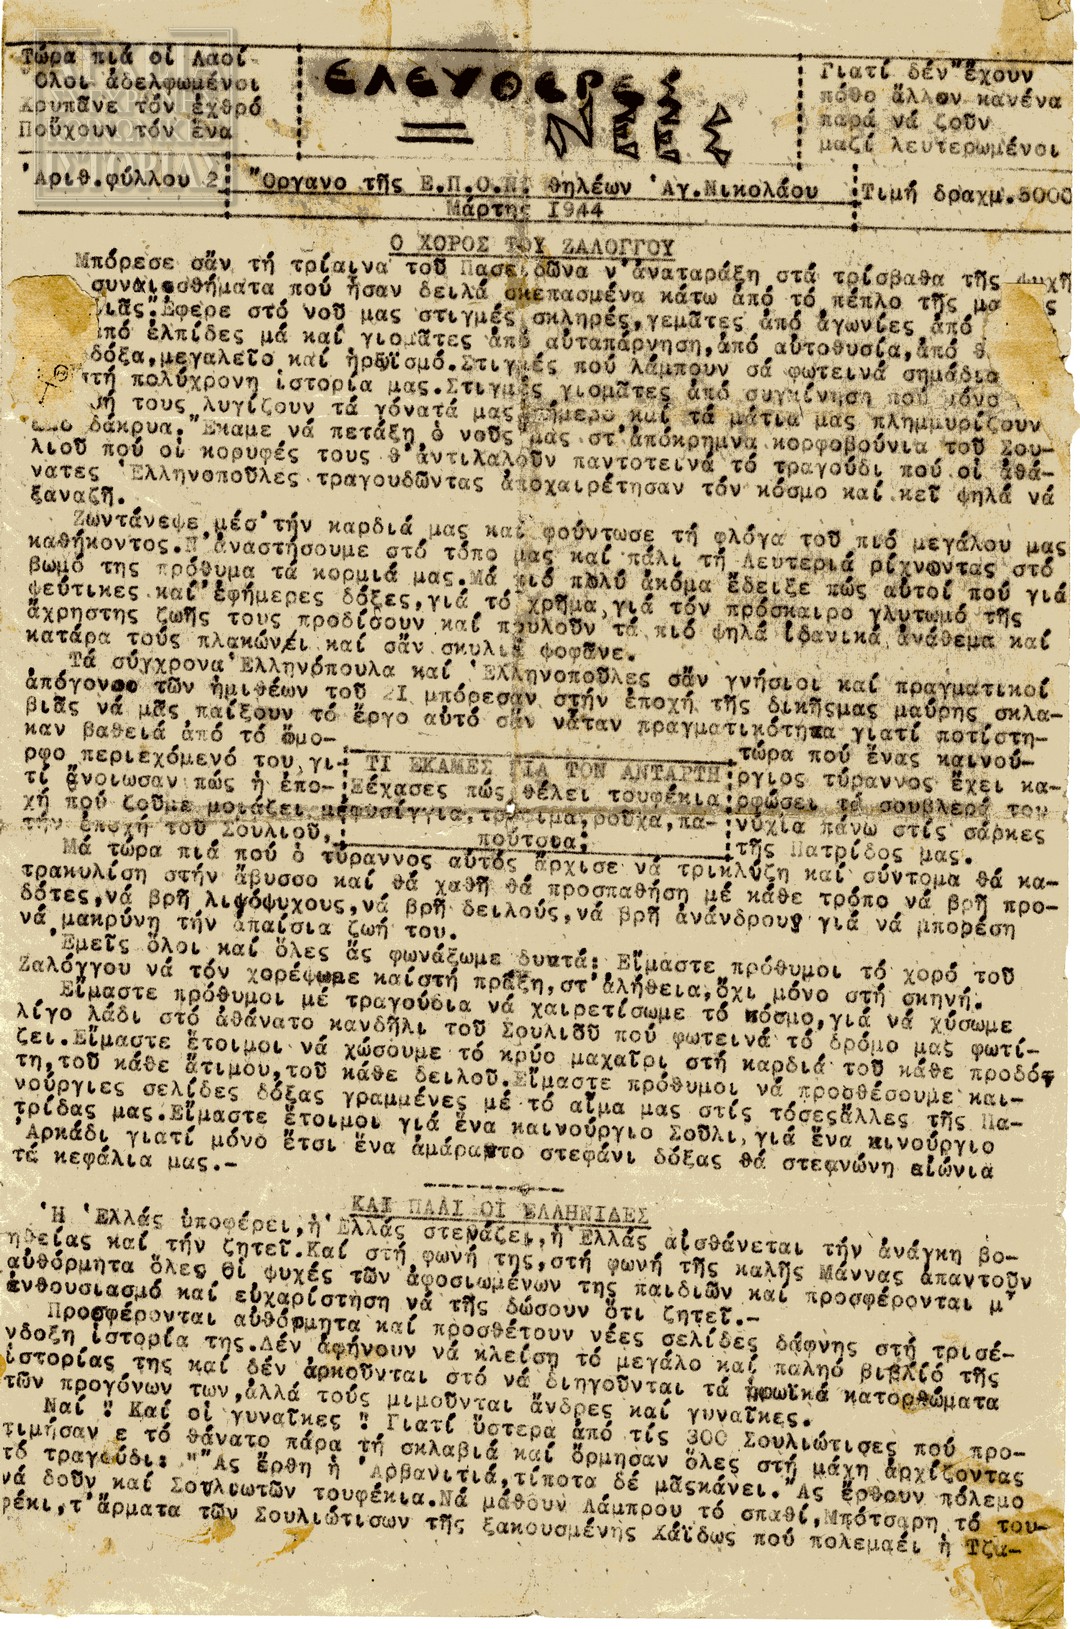 Τώρα πιά οἱ Λαοί
Ὅλοι ἀδελφωμένοι
Χτυπᾶνε τόν ἐχθρό
Ποὔχουν τόν ἕνα
ΕΛΕΥΘΕΡΕΣ
ΝΕΕΣ
Γιατί δέν ἔχουν
πόθο ἄλλον κανένα
παρά νά ζοῦν
μαζί λευτερωμένοι
Ἀριθ.φύλλου 2
Ὄργανο τῆς Ε.Π.Ο.Ν. θηλέων Ἁγ.Νικολάου
Μάρτης 1944
Τιμή δραχμ.5000
Ο ΧΟΡΟΣ ΤΟΥ ΖΑΛΟΓΓΟΥ
Μπόρεσε σἄν τή τρίαινα τοῦ Ποσειδῶνα ν'ἀναταράξη στά τρίσβαθα τῆς ψυχῆς
συναισθήματα πού ἦσαν δειλά σκεπασμένα κάτω ἀπό τό πέπλο τῆς
Ἔφερε στό νοῦ μας στιγμές σκληρές,γεμᾶτες ἀπό ἀγωνίες ἀπό
ἀπό ἐλπίδες μά καί γιομᾶτες ἀπό αὐταπάρνηση,ἀπό αὐτοθυσία,ἀπό
δόξα,μεγαλεῖο καί ἡρωϊσμό.Στιγμές πού λάμπουν σά φωτεινά σημάδια
στή πολύχρονη ἱστορία μας.Στιγμές γιομᾶτες ἀπό συγκίνηση πού μόνο
τους λυγίζουν τά γόνατά μας σήμερα καί τά μάτια μας πλημμυρίζουν
ἀπό δάκρυα.Ἔκαμε νά πετάξη ὁ νοῦς μας στ'ἀπόκρημνα κορφοβούνια τοῦ Σου-
λιοῦ πού οἱ κορυφές τους θ'ἀντιλαλοῦν παντοτεινά τό τραγούδι πού οἱ ἀθά-
νατες Ἑλληνοποῦλες τραγουδῶντας ἀποχαιρέτησαν τόν κόσμο καί κεῖ ψηλά νά
ξαναζῆ.
Ζωντάνεψε μέσ'τήν καρδιά μας καί φούντωσε τή φλόγα τοῦ πιό μεγάλου μας
καθήκοντος.Ν'ἀναστήσουμε στό τόπο μας καί πάλι τή Λευτεριά ρίχνοντας στό
βωμό της πρόθυμα τά κορμιά μας.Μά πιό πολύ ἀκόμα ἔδειξε πώς αὐτοί πού γιά
ψεύτικες καί ἐφήμερες δόξες,γιά τό χρῆμα,γιά τόν πρόσκαιρο γλυτωμό τῆς
ἄχρηστης ζωῆς τους προδίδουν καί πουλοῦν τά πιό ψηλά ἰδανικά ἀνάθεμα καί
κατάρα τούς πλακώνει καί σἄν σκυλιά ψοφᾶνε.
Τά σύγχρονα Ἑλληνόπουλα καί Ἑλληνοποῦλες σἄν γνήσιοι καί πραγματικοί
ἀπόγονοι τῶν ἡμιθέων τοῦ 21 μπόρεσαν στήν ἐποχή τῆς δικῆςμας μαύρης σκλα-
βιᾶς νά μᾶς παίξουν τό ἔργο αὐτό σἄν νἆταν πραγματικότητα γιατί ποτίστη-
καν βαθειά ἀπό τό ὄμο-
ρφο περιεχόμενό του,γι-
τί ἄνοιωσαν πώς ἡ ἐπο-
χή πού ζοῦμε μοιάζει μέ
τήν ἐποχή τοῦ Σουλιοῦ,
ΤΙ ΕΚΑΜΕΣ ΓΙΑ ΤΟΝ ΑΝΤΑΡΤΗ
Ξέχασες πώς θέλει τουφέκια
φυσίγγια,τρόφιμα,ροῦχα,πα-
πούτσια;
τώρα πού ἕνας καινού-
ργιος τύραννος ἔχει κα-
ρφώσει τά σουβλερά του
νύχια πάνω στίς σάρκες
τῆς Πατρίδος μας.
Μά τώρα πιά πού ὁ τύραννος αὐτός ἄρχισε νά τρικλύζη καί σύντομα θά κα-
τρακυλίση στήν ἄβυσσο καί θά χαθῆ θά προσπαθήση μέ κάθε τρόπο νά βρῆ προ-
δότες,νά βρῆ λιγόψυχους,νά βρῆ δειλούς,νά βρῆ ἀνάνδρους γιά νά μπορέση
νά μακρύνη τήν ἀπαίσια ζωή του.
Ἐμεῖς ὅλοι καί ὅλες ἄς φωνάξωμε δυντά: Εἴμαστε πρόθυμοι τό χορό τοῦ
Ζαλόγγου νά τόν χορέψωμε καίστή πράξη,στ'ἀλήθεια,ὄχι μόνο στή σκηνή.
Εἴμαστε πρόθυμοι μέ τραγούδια νά χαιρετίσωμε τό κόσμο,γιά νά χύσωμε
λίγο λάδι στό ἀθάνατο κανδῆλι τοῦ Σουλιοῦ πού φωτεινά τό δρόμο μας φωτί-
ζει.Εἴμαστε ἕτοιμοι νά χώσουμε τό κρύο μαχαῖρι στή καρδιά τοῦ κάθε προδότ
τη,τοῦ κάθε ἄτιμου,τοῦ κάθε δειλοῦ.Εἴμαστε πρόθυμοι νά προσθέσουμε και-
νούργιες σελίδες δόξας γραμμένες μέ τό αἷμα μας στίς τόσεςἄλλες τῆς Πα-
τρίδας μας.Εἴμαστε ἕτοιμοι γιά ἕνα καινούργιο Σοῦλι,γιά ἕνα κινούργιο
Ἀρκάδι γιατί μόνο ἔτσι ἕνα ἀμάραντο στεφάνι δόξας θά στεφνώνη αἰώνια
τά κεφάλια μας.-
ΚΑΙ ΠΑΛΙ ΟΙ ΕΛΛΗΝΙΔΕΣ
Ἡ Ἑλλάς ὑποφέρει,ἡ Ἑλλάς στενάζει,ἡ Ἑλλάς αἰσθάνεται τήν ἀνάγκη βο-
ηθείας καί τήν ζητεῖ.Καί στή φωνή της,στή φωνή τῆς καλῆς Μάννας ἀπαντοῦν
αὐθόρμητα ὅλες οἱ ψυχές τῶν ἀφοσιωμένων της παιδιῶν καί προσφέρονται μ'
ἐνθουσιασμό καί εὐχαρίστηση νά τῆς δώσουν ὅτι ζητεῖ.-
Προσφέρονται αὐθόρμητα καί προσθέτουν νέες σελίδες δάφνης στή τρισέ-
νδοξη ἱστορία της.Δέν ἀφήνουν νά κλείση τό μεγάλο καί παληό βιβλίό τῆς
ἱστορίας της καί δέν ἀρκοῦνται στό νά διηγοῦνται τά ἡρωϊκά κατορθώματα
τῶν προγόνων των,ἀλλά τούς μιμοῦνται ἄνδρες καί γυναῖκες.
Ναί !! Καί οἱ γυναῖκες !! Γιατί ὕστερα ἀπό τίς 300 Σουλιώτισες πού προ-
τιμήσαν ε τό θάνατο πάρα τή σκλαβιά καί ὅρμησαν ὅλες στή μάχη ἀρχίζοντας
τό τραγούδι: "Ἄς ἔρθη ἡ Ἀρβανιτιά,τίποτα δέ μᾶςκάνει."Ἄς ἔρθουν πόλεμο
νά δοῦν καί Σουλιωτῶν τουφέκια.Νά μάθουν Λάμπρου τό σπαθί,Μπότσαρη τό του-
φέκι,τ'ἄρματα τῶν Σουλιώτισων τῆς ξακουσμένης Χάϊδως πού πολεμαεί ἡ Τζα-